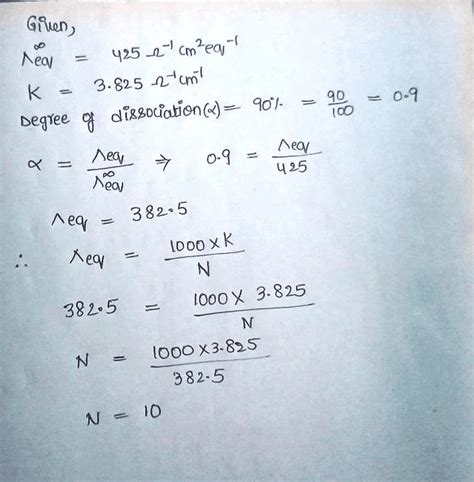 Given,
Λ∞eq = 425 Ω⁻¹ cm² eq⁻¹
K = 3.825 Ω⁻¹ cm⁻¹
Degree of dissociation(α) = 90% = 90/100 = 0.9
α = Λeq/Λ∞eq ⇒ 0.9 = Λeq/425
Λeq = 382.5
∴ Λeq = 1000 × K/N
382.5 = 1000 × 3.825/N
N = 1000 × 3.825/382.5
N = 10